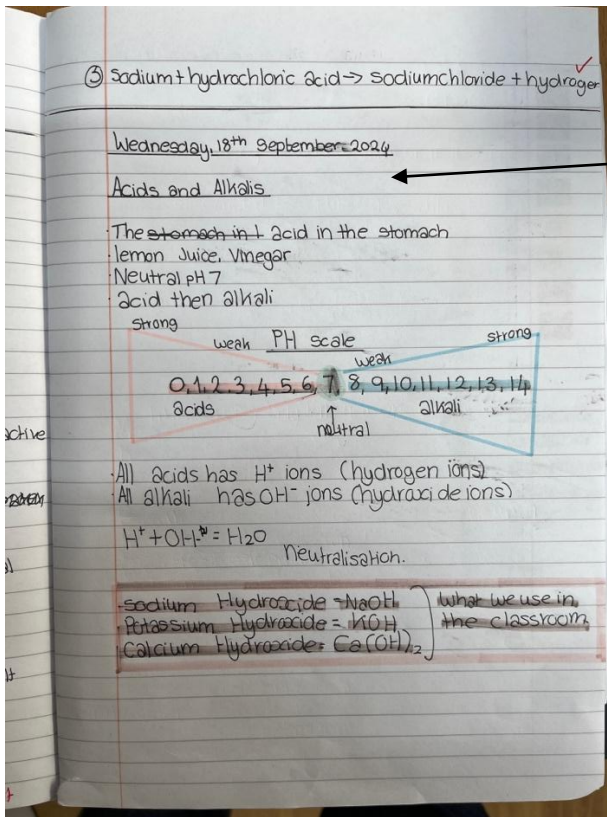 ③ Sodium + hydrochloric acid → Sodiumchloride + hydrogen
Wednesday, 18th September 2024
Acids and Alkalis
· The stomach in t acid in the stomach
· lemon Juice, Vinegar
· Neutral pH 7
· acid then alkali
strong
weak
PH scale
weak
strong
0, 1, 2, 3, 4, 5, 6, 7, 8, 9, 10, 11, 12, 13, 14
acids
↑
alkali
neutral
· All acids has H⁺ ions (hydrogen ions)
· All alkali has OH⁻ ions (hydroxide ions)
H⁺ + OH⁻ = H₂O
Neutralisation.
· Sodium Hydroxide = NaOH
· Potassium Hydroxide = KOH
· Calcium Hydroxide = Ca(OH)₂
What we use in
the classroom
active